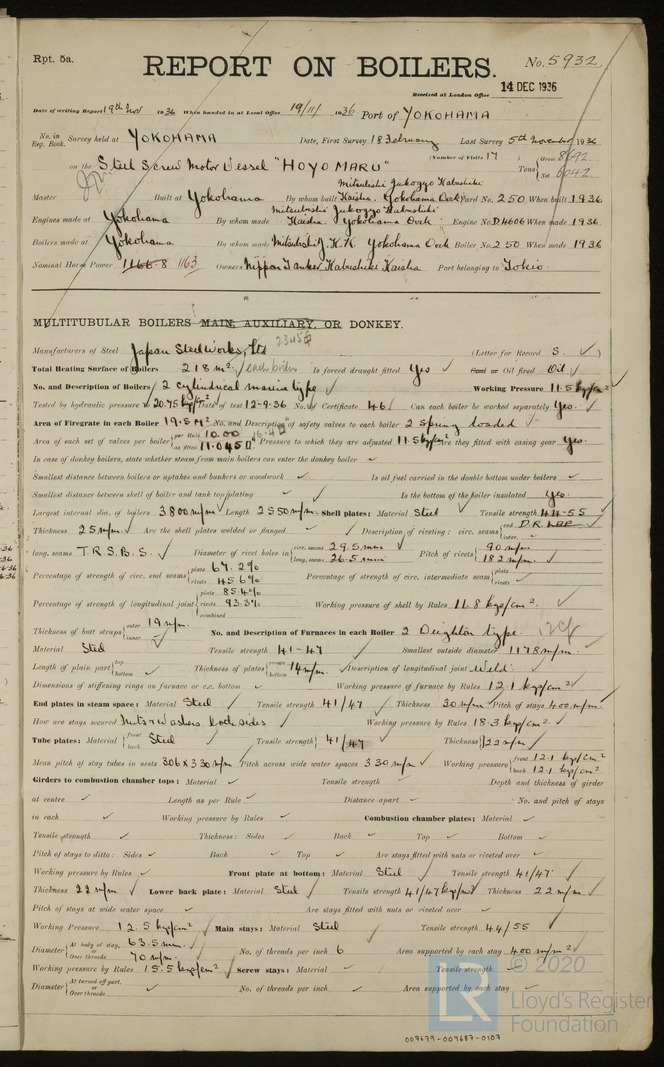 Rpt. 5a.
REPORT ON BOILERS.
No. 5932.
Received at London Office 14 DEC 1936
Date of writing Report 19th Nov 1936 When handed in at Local Office 19/11/1936 Port of YOKOHAMA
No. in Reg. Book. Survey held at YOKOHAMA Date, First Survey 18 February Last Survey 5th November 1936
(Number of Visits 17)
on the Steel Screw Motor Vessel "HOYO MARU" Tons Gross 8692 Net 6042
Master Built at Yokohama By whom built Mitsubishi Jukogyo Kabushiki Kaisha, Yokohama Dock Yard No. 250 When built 1936
Engines made at Yokohama By whom made Mitsubishi Jukogyo Kabushiki Kaisha Yokohama Dock Engine No. D4606 When made 1936
Boilers made at Yokohama By whom made Mitsubishi J.K.K. Yokohama Dock Boiler No. 250 When made 1936
Nominal Horse Power 1166.8 1163 Owners Nippon Tanker Kabushiki Kaisha Port belonging to Tokio
MULTITUBULAR BOILERS MAIN, AUXILIARY, OR DONKEY.
Manufacturers of Steel Japan Steel Works, Ltd (Letter for Record S. ✓)
Total Heating Surface of Boilers 218 m² each boiler Is forced draught fitted Yes Coal or Oil fired Oil
No. and Description of Boilers 2 cylindrical marine type Working Pressure 11.5 kg/cm²
Tested by hydraulic pressure to 20.75 kg/cm² Date of test 12-9-36 No. of Certificate 461 Can each boiler be worked separately Yes.
Area of Firegrate in each Boiler 19.5 M² No. and Description of safety valves to each boiler 2 Spring loaded
Area of each set of valves per boiler per Rule 10.00 as fitted 11.045 Pressure to which they are adjusted 11.5 kg/cm² Are they fitted with easing gear Yes.
In case of donkey boilers, state whether steam from main boilers can enter the donkey boiler ✓
Smallest distance between boilers or uptakes and bunkers or woodwork ✓ Is oil fuel carried in the double bottom under boilers ✓
Smallest distance between shell of boiler and tank top plating ✓ Is the bottom of the boiler insulated Yes
Largest internal dia. of boilers 3800 m/m Length 2550 m/m Shell plates: Material Steel Tensile strength 44-55
Thickness 25 m/m Are the shell plates welded or flanged ✓ Description of riveting: circ. seams end D.R. LAP inter. ✓
long. seams T.R.S.B.S. Diameter of rivet holes in circ. seams 29.5 m/m long. seams 26.5 m/m Pitch of rivets 90 m/m 182 m/m
Percentage of strength of circ. end seams plate 67.2% rivets 45.6% Percentage of strength of circ. intermediate seam plate rivets ✓
Percentage of strength of longitudinal joint plate 85.4% rivets 93.3% combined Working pressure of shell by Rules 11.8 kg/cm²
Thickness of butt straps outer 19 m/m inner ✓ No. and Description of Furnaces in each Boiler 2 Deighton type
Material Steel Tensile strength 41-47 Smallest outside diameter 1178 m/m
Length of plain part top bottom ✓ Thickness of plates crown bottom 14 m/m Description of longitudinal joint Weld
Dimensions of stiffening rings on furnace or c.c. bottom ✓ Working pressure of furnace by Rules 12.1 kg/cm²
End plates in steam space: Material Steel Tensile strength 41/47 Thickness 30 m/m Pitch of stays 400 m/m
How are stays secured Nuts & washers both sides Working pressure by Rules 18.3 kg/cm²
Tube plates: Material front back Steel Tensile strength 41/47 Thickness 22 m/m
Mean pitch of stay tubes in nests 306 x 330 m/m Pitch across wide water spaces 330 m/m Working pressure front 12.1 kg/cm² back 12.1 kg/cm²
Girders to combustion chamber tops: Material ✓ Tensile strength Depth and thickness of girder
at centre ✓ Length as per Rule ✓ Distance apart ✓ No. and pitch of stays
in each ✓ Working pressure by Rules ✓ Combustion chamber plates: Material ✓
Tensile strength ✓ Thickness: Sides ✓ Back ✓ Top ✓ Bottom ✓
Pitch of stays to ditto: Sides ✓ Back ✓ Top ✓ Are stays fitted with nuts or riveted over ✓
Working pressure by Rules ✓ Front plate at bottom: Material Steel Tensile strength 41/47
Thickness 22 m/m Lower back plate: Material Steel Tensile strength 41/47 kg/mm² Thickness 22 m/m
Pitch of stays at wide water space ✓ Are stays fitted with nuts or riveted over ✓
Working Pressure 12.5 kg/cm² Main stays: Material Steel Tensile strength 44/55
Diameter At body of stay, or Over threads 63.5 m/m 70 m/m No. of threads per inch 6 Area supported by each stay 400 m/m²
Working pressure by Rules 15.5 kg/cm² Screw stays: Material ✓ Tensile strength ✓
Diameter At turned off part, or Over threads ✓ No. of threads per inch ✓ Area supported by each stay ✓
© 2020
LR
Lloyd's Register
Foundation
007679-007687-0107